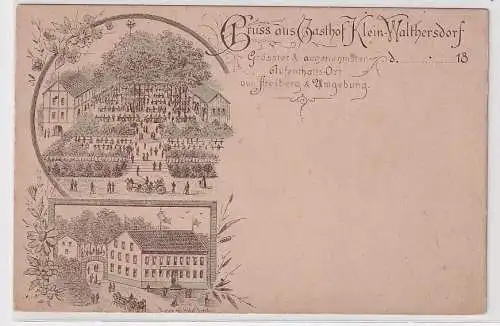 Gruss aus Gasthof Klein-Walthersdorf
Grösster & angenehmster d. . 18
Aufenthalts-Ort
von Freiberg & Umgebung.